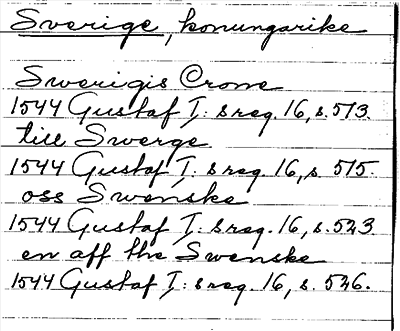 Sverige, konungarike
Swerigis Crone
1544 Gustaf I: s reg. 16, s. 513.
till Swerge
1544 Gustaf I: s reg. 16, s. 515.
oss Swenske
1544 Gustaf I: s reg. 16, s. 523
en aff the Swenske
1544 Gustaf I: s reg. 16, s. 526.